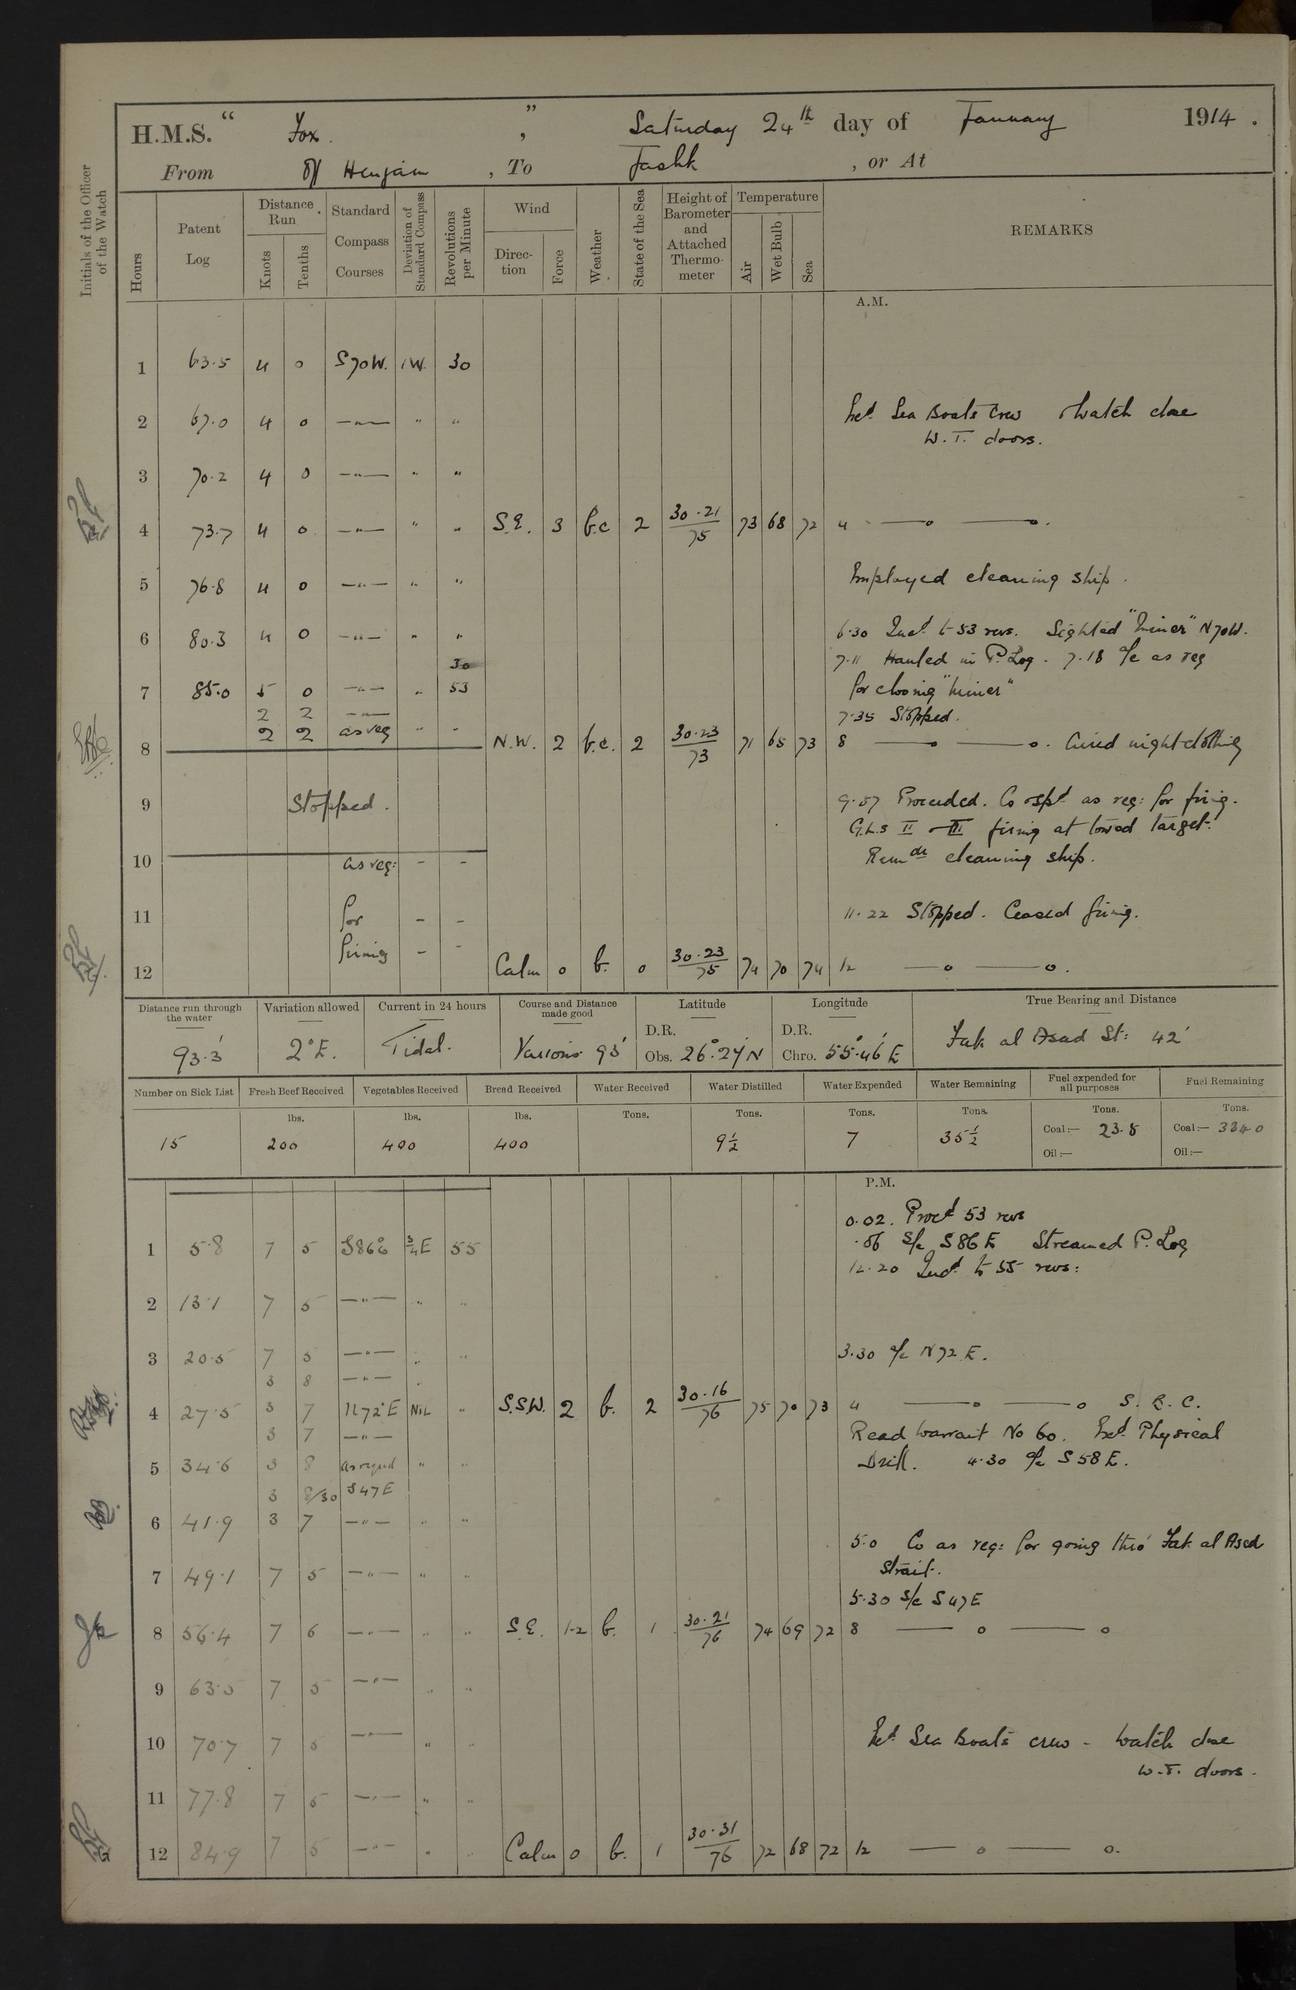 H.M.S. " Fox. " , Saturday 24th day of January 1914.
From Off Henjam , To Jashk , or At
Initials of the Officer of the Watch
Hours
Patent Log
Distance Run
Knots
Tenths
Standard Compass Courses
Deviation of Standard Compass
Revolutions per Minute
Wind
Direction
Force
Weather
State of the Sea
Height of Barometer and Attached Thermometer
Temperature
Air
Wet Bulb
Sea
REMARKS
A.M.
1 63.5 4 0 S70W. 1W. 30
2 67.0 4 0 —"— " " Exd. Sea Boats Crew & Watch close
W.T. doors.
3 70.2 4 0 —"— " "
4 73.7 4 0 —"— " " S.E. 3 b.c 2 30.21/75 73 68 72 4 ——o ——o.
5 76.8 4 0 —"— " " Employed cleaning ship.
6 80.3 4 0 —"— " " 6.30 Incd. to 53 revs. Sighted "Miner" N70W.
30 7.11 Hauled in P. Log. 7.18 a/c as req
7 85.0 5 0 —"— " 53 for closing "Miner"
2 2 —"— 7.35 Stopped.
2 2 as req " "
8 N.W. 2 b.c. 2 30.23/73 71 65 73 8 ——o ——o. Aired night clothing
9 Stopped. 9.57 Proceeded. Co & spd as req: for firing.
G.L.s II & III firing at towed target.
Remdr cleaning ship.
10 as req: - -
11 for - - 11.22 Stopped. Ceased firing.
firing - -
12 Calm 0 b. 0 30.23/75 74 70 74 12 ——o ——o.
Distance run through the water 93.3'
Variation allowed 2°E.
Current in 24 hours Tidal.
Course and Distance made good Various 93'
Latitude D.R. Obs. 26°.27'N
Longitude D.R. Chro. 55°.46'E
True Bearing and Distance Fak al Asad St: 42'
Number on Sick List 15
Fresh Beef Received lbs. 200
Vegetables Received lbs. 400
Bread Received lbs. 400
Water Received Tons.
Water Distilled Tons. 9½
Water Expended Tons. 7
Water Remaining Tons. 35½
Fuel expended for all purposes Tons. Coal:— 23.8 Oil:—
Fuel Remaining Tons. Coal:— 3340 Oil:—
P.M.
0.02. Procd 53 revs
1 5.8 7 5 S86E ¾E 55 .06 s/c S86E Streamed P. Log
12.20 Incd. to 55 revs:
2 13.1 7 5 —"— " "
3 20.5 7 5 —"— " " 3.30 a/c N72E.
3 8 —"— "
4 27.5 3 7 N72°E NIL " S.S.W. 2 b. 2 30.16/76 75 70 73 4 ——o ——o S. B. C.
3 7 —"— Read Warrant No 60. Exd. Physical
5 34.6 3 8 as reqd " " Drill. 4.30 a/c S58E.
3 8/30 S47E
6 41.9 3 7 —"— " "
5.0 Co as req: for going thro' Fak al Asad
7 49.1 7 5 —"— " " Strait.
5.30 s/c S47E
8 56.4 7 6 —"— " " S.E. 1-2 b. 1 30.21/76 74 69 72 8 —— o —— o
9 63.5 7 5 —"— " "
10 70.7 7 5 —"— " " Exd. Sea Boats crew - Watch close
W.T. doors.
11 77.8 7 5 —"— " "
12 84.9 7 5 —"— " " Calm 0 b. 1 30.31/76 72 68 72 12 —— o —— o.